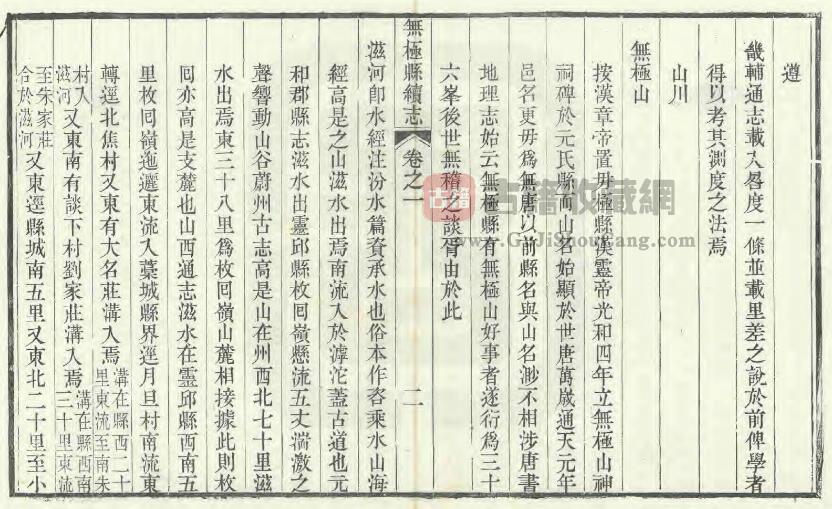 遵
畿輔通志載入晷度一條並載里差之說於前俾學者
得以考其測度之法焉
山川
無極山
按漢章帝置毋極縣漢靈帝光和四年立無極山神
祠碑於元氏縣而山名始顯於世唐萬歲通天元年
邑名更毋爲無唐以前縣名與山名渺不相涉唐書
地理志始云無極縣有無極山好事者遂衍爲三十
六峯後世無稽之談胥由於此
無極縣續志 卷之一 二
滋河卽水經注汾水篇資承水也俗本作咨乘水山海
經高是之山滋水出焉南流入於滹沱蓋古道也元
和郡縣志滋水出靈邱縣枚囘嶺懸流五丈湍激之
聲響動山谷蔚州古志高是山在州西北七十里滋
水出焉東三十八里爲枚囘嶺山麓相接據此則枚
囘亦高是支麓也山西通志滋水在靈邱縣西南五
里枚囘嶺迤邐東流入藁城縣界逕月旦村南流東
轉逕北焦村又東有大名莊溝入焉溝在縣西二十里東流至南朱
村入滋河又東南有談下村劉家莊溝入焉溝在縣西南三十里東流
至朱家莊合於滋河又東逕縣城南五里又東北二十里至小
古籍
古籍收藏網
www.GuJiShouCang.com